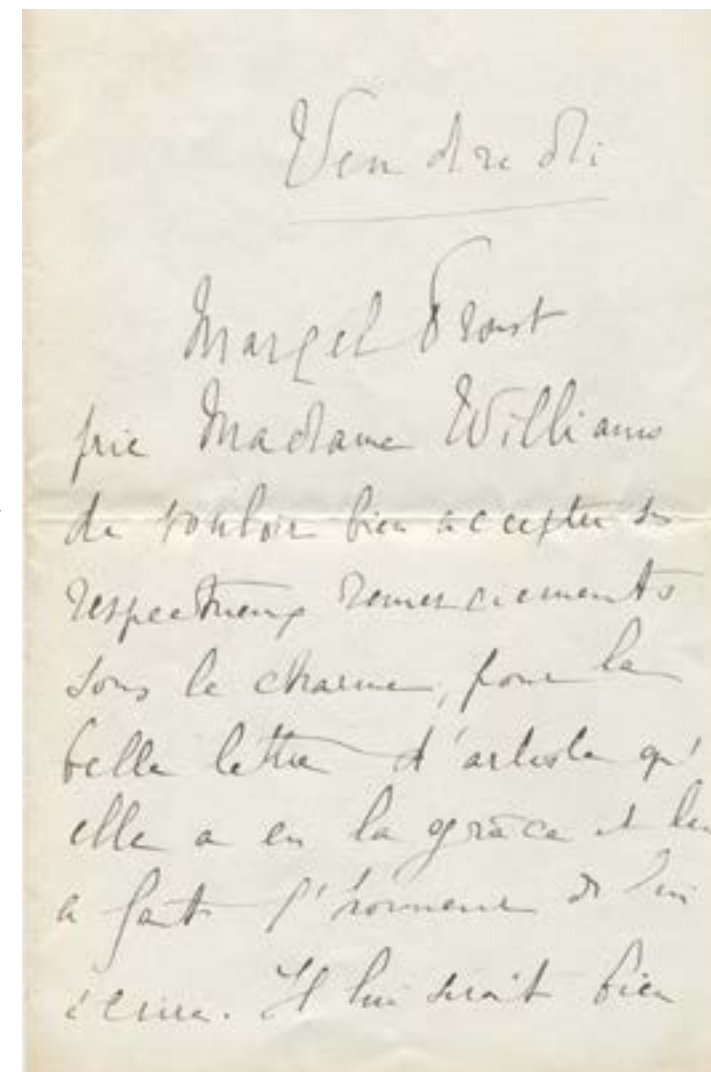 Vendredi
Marcel Proust
prie Madame Williams
de vouloir bien accepter ses
respectueux remerciements
sous le charme, pour la
belle lettre d'artiste qu'
elle a eu la grâce et lui
a fait l'honneur de lui
écrire. Il lui serait bien